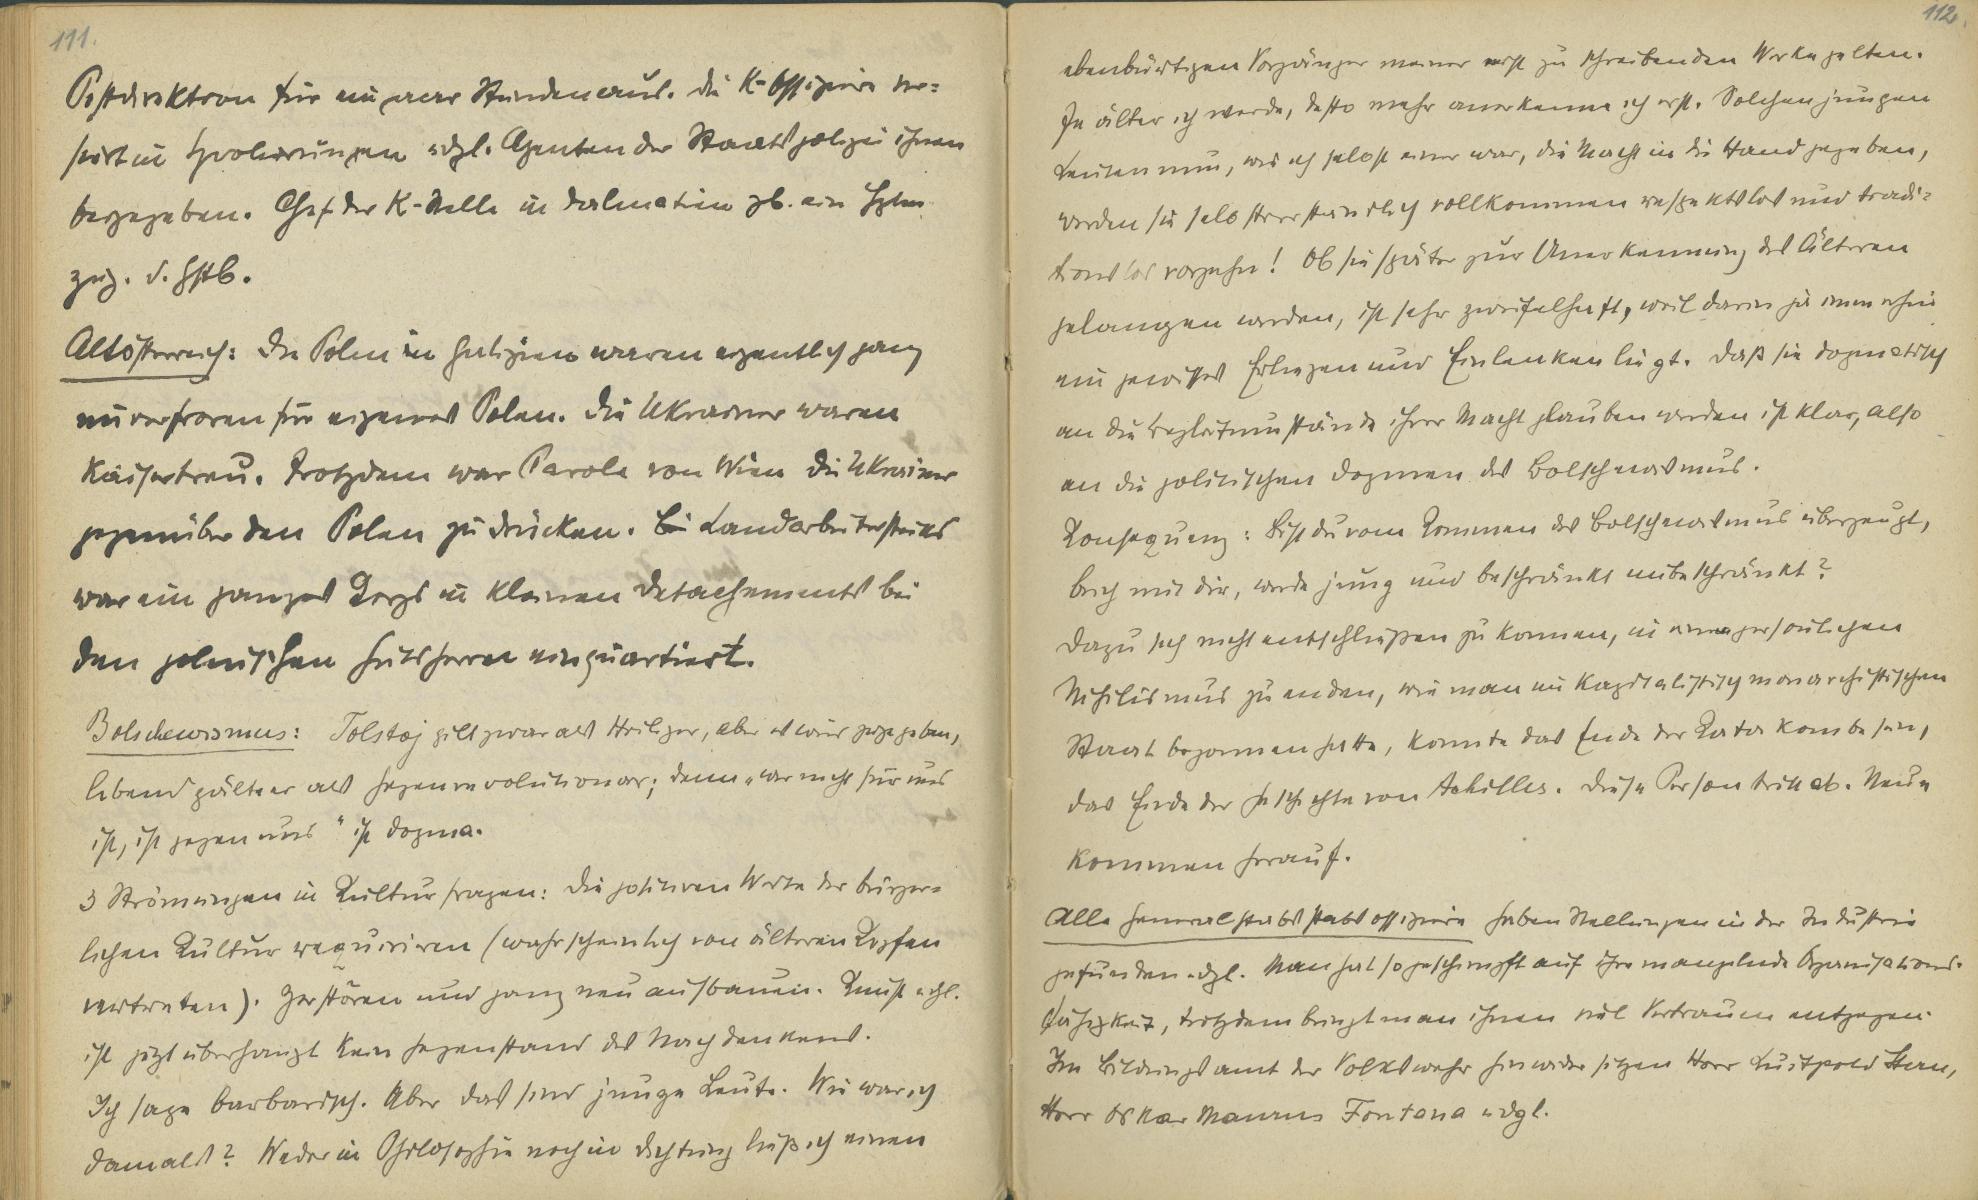 111.
Postdirektion für ein paar Stunden aus. Die K-Offiziere ver=
siert in Evolvierungen udgl. Agenten der Staatspolizei ihnen
beigegeben. Chef der K-Stelle in Dalmatien zb. ein Hptm
zug. d. Gstb.
Altösterreich: Die Polen in Galizien waren eigentlich ganz
unverfroren für eigenes Polen. Die Ukrainer waren
kaisertreu. Trotzdem war Parole von Wien die Ukrainer
gegenüber den Polen zu drücken. Bei Landarbeiterstreiks
war ein ganzes Korps in kleinen Detachements bei
den polnischen Gutsherren einquartiert.
Bolschewismus: Tolstoj gilt zwar als Heiliger, aber es wird zugegeben,
lebend gälte er als Gegenrevolutionär; denn „wer nicht für uns
ist, ist gegen uns“ ist Dogma.
3 Strömungen in Kulturfragen: Die positiven Werte der bürger=
lichen Kultur requirieren (wahrscheinlich von älteren Köpfen
vertreten). Zerstören und ganz neu aufbauen. Kunst udgl.
ist jetzt überhaupt kein Gegenstand des Nachdenkens.
Ich sage barbarisch. Aber das sind junge Leute. Wie war ich
damals? Weder in Philosophie noch in Dichtung ließ ich einen
112.
ebenbürtigen Vorgänger meiner erst zu schreibenden Werke gelten.
Je älter ich werde, desto mehr anerkenne ich erst. Solchen jungen
Leuten nun, wie ich selbst einer war, die Macht in die Hand gegeben,
werden sie selbstverständlich vollkommen respektslos und tradi=
tionslos vorgehn! Ob sie später zur Anerkennung des Älteren
gelangen werden, ist sehr zweifelhaft, weil darin ja immerhin
ein gewisses Erliegen und Einlenken liegt. Daß sie dogmatisch
an die Begleitumstände ihrer Macht glauben werden ist klar, also
an die politischen Dogmen des Bolschewismus.
Konsequenz: Bist du vom Kommen des Bolschewismus überzeugt,
brich mit dir, werde jung und beschränkt unbeschränkt?
Dazu sich nicht entschließen zu können, in einem persönlichen
Nihilismus zu enden, wie man im kapitalistisch monarchistischen
Staat begonnen hatte, könnte das Ende der Katakombe sein,
das Ende der Geschichte von Achilles. Diese Person tritt ab. Neue
kommen herauf.
Alle Generalstabsstabsoffiziere haben Stellungen in der Industrie
gefunden udgl. Man hat so geschimpft auf ihre mangelnde Organisations-
fähigkeit, trotzdem bringt man ihnen viel Vertrauen entgegen.
Im Bildungsamt der Volkswehr hinwider sitzen Herr Luitpold Stern,
Herr Oskar Maurus Fontana udgl.